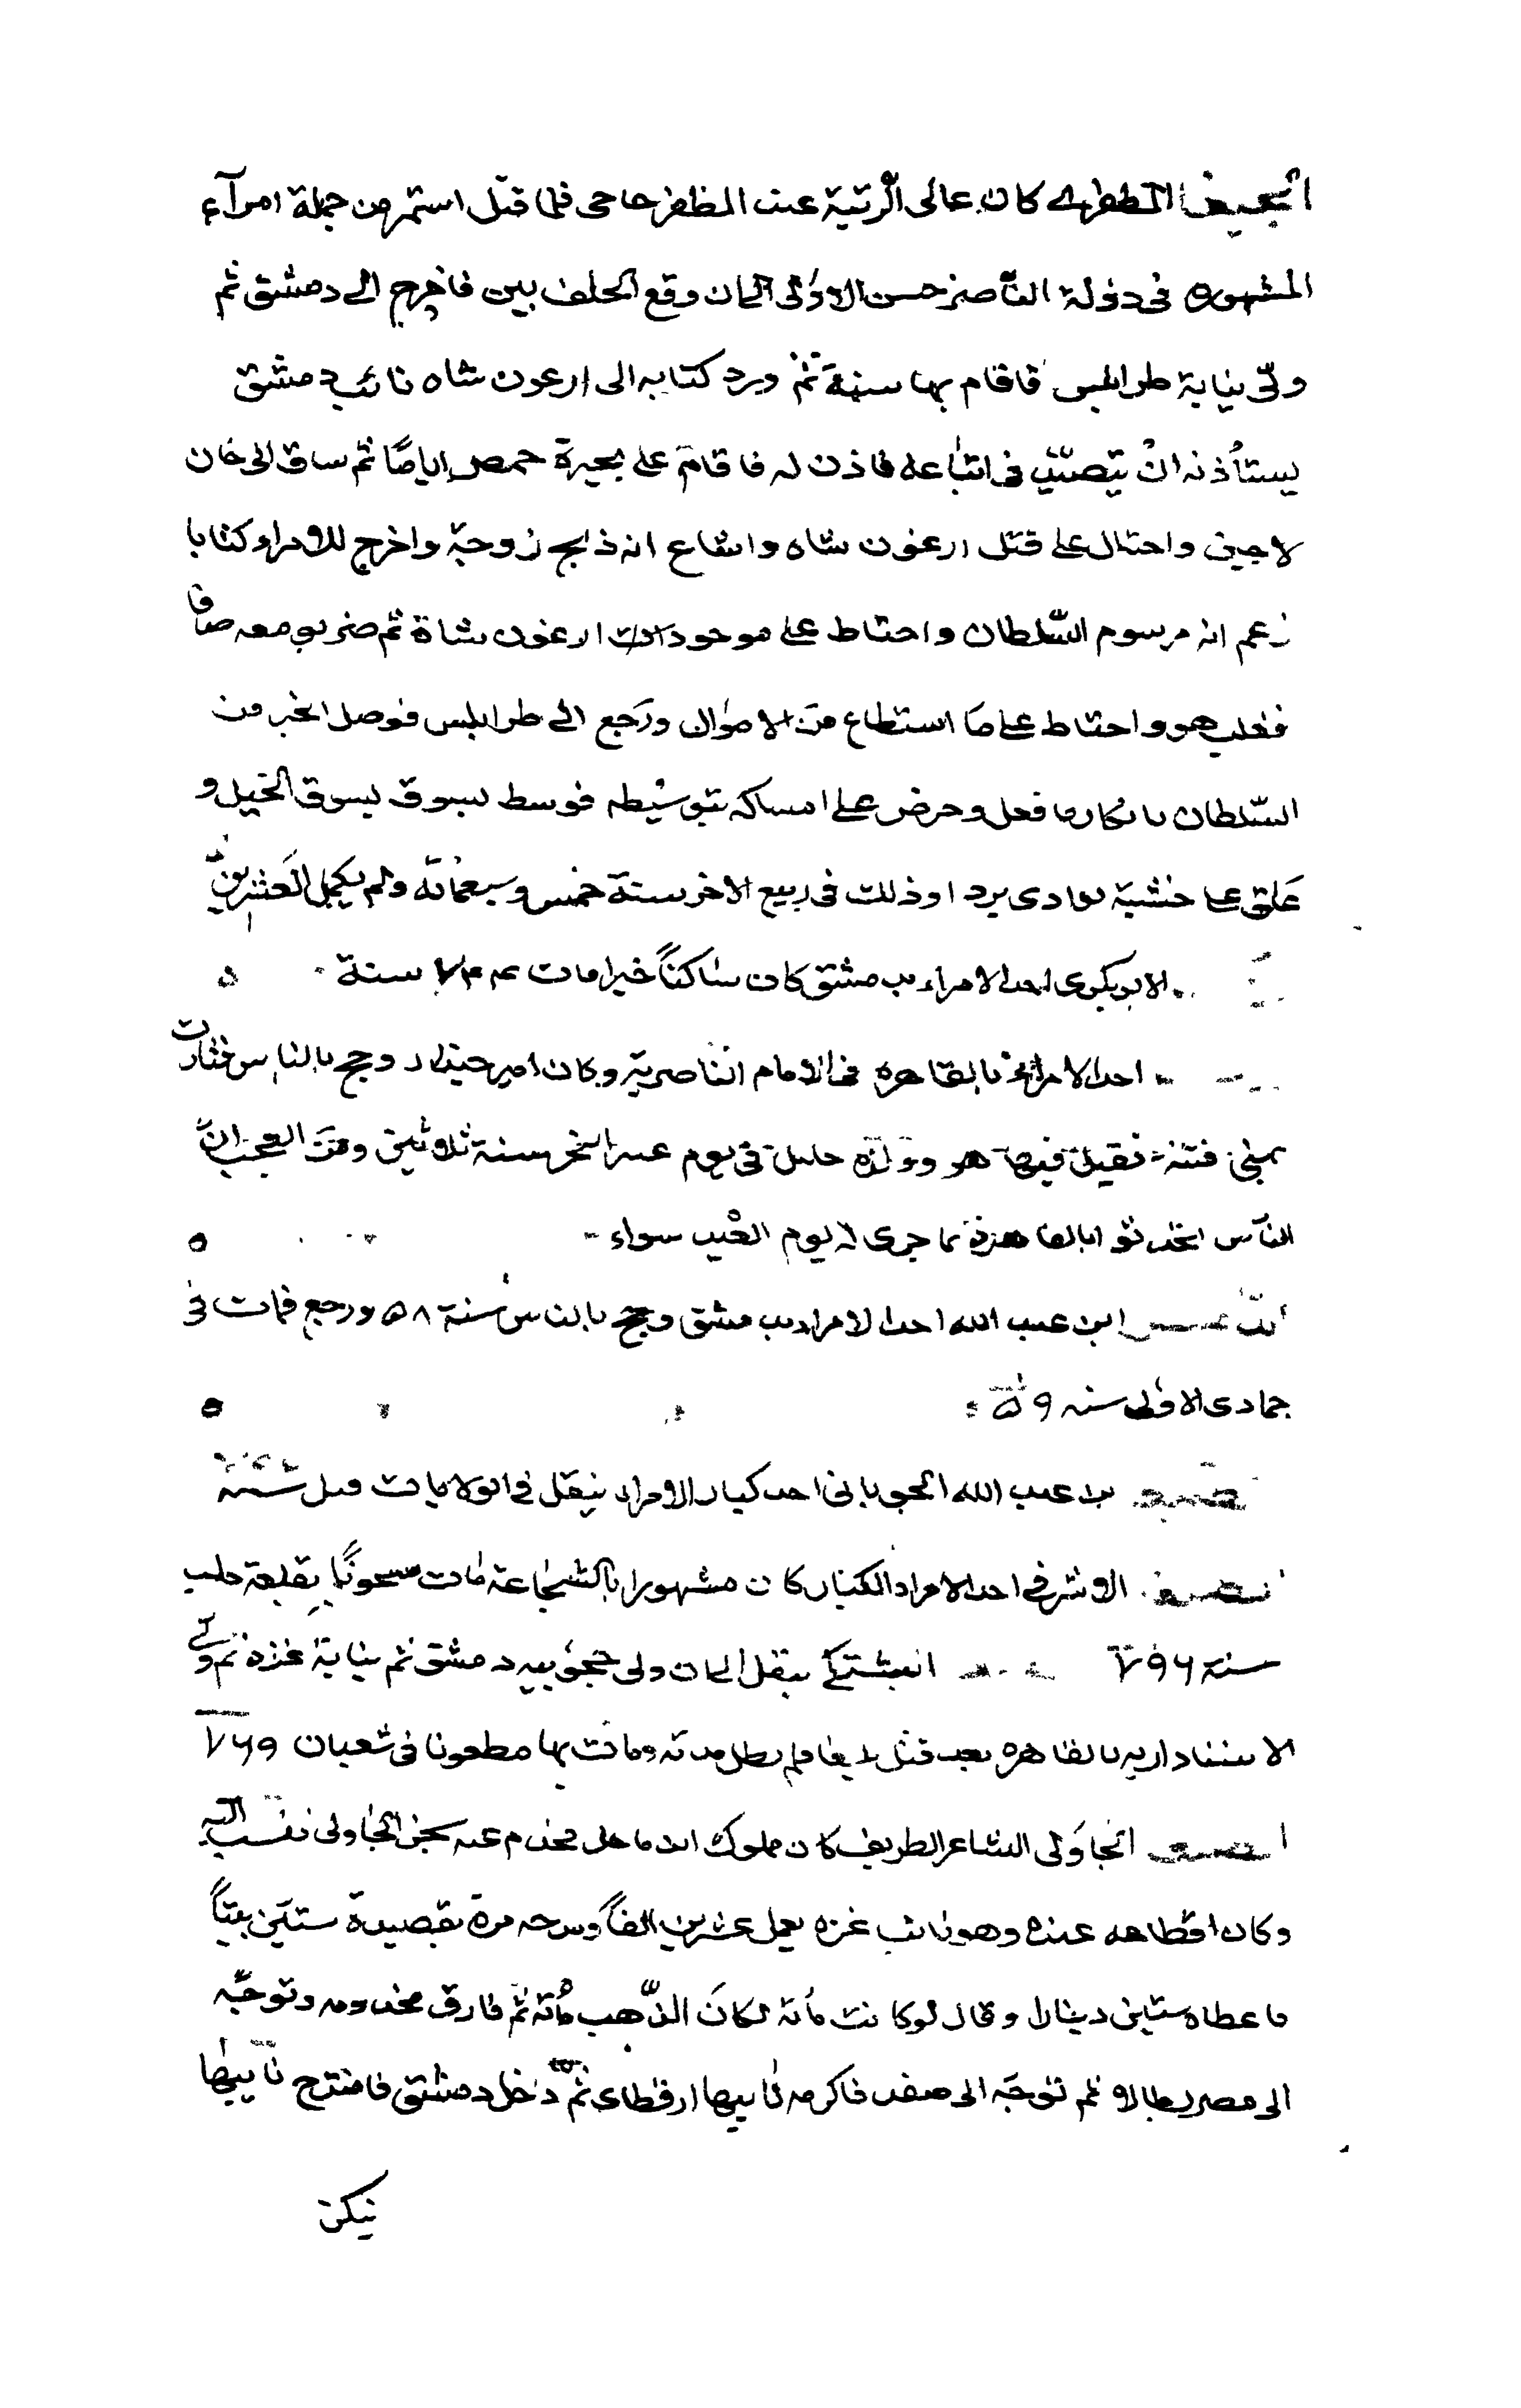 الجيبغا المظفري كان عالى الرّتبة عند المظفر حاجى فلما قتل استمر من جملة امرآء
المشهورة فى دولة النّاصر حسن الاولى الى ان وقع الخلف بين فاخرج الى دمشق ثم
ولّى نيابة طرابلس فاقام بها سنة ثم ورد كتابه الى ارغون شاه نائب دمشق
يستأذنه ان يتصيّد فى اتباعه فاذن له فاقام على بحيرة حمص اياما ثم ساق الى خان
لاجين واحتال على قتل ارغون شاه واشاع انه ذبح زوجته واخرج للامراء كتابا
زعم انه مرسوم السّلطان واحتاط على موجودات ارغون شاة ثم ضربو معه مصافا
فغلب هو واحتاط على ما استطاع من الاموال ورجع الى طرابلس فوصل الخبر من
السّلطان بانكار ما فعل وحرض على امساكه بتوسيطه فوسط بسوق الخيل و
علق على خشبة بوادى بردا وذلك فى ربيع الاخر سنة خمس وسبعمائة ولم يكمل العشرين
الابوبكرى احد الامراء بدمشق كان ساكناً خيرا مات ٧٤٤ سنة
احد الامراء بالقاهره فى الايام الناصرية وكان امير جندار وحج بالناس فثارت
بمنى فتنة فقتل فيها هو وولده خليل فى يوم عيد النحر سنة ثلاثين ومن العجب انّ
النّاس تحدثوا بالقاهرة بما جرى له يوم العيد سواء
ابن عبد الله احد الامراء بدمشق وحج بالناس سنة ٥٨ ورجع فمات فى
جمادى الاولى سنه ٥٩
بن عبد الله الحوبانى احد كبار الامراء تنقل فى الولايات
الاشرفى احد الامراء الكبار كان مشهورا بالشجاعة مات مسجونًا بقلعة حلب
سنة ٧٩٦ البشتكى تنقل الى ان ولى حجوبيه دمشق ثم نيابة غزه ثم ولى
الاستاداريه بالقاهره بعد قتل يلبغا فلم يطل مدته ومات بها مطعونا فى شعبان ٧٦٩
الجاولى الشاعر الظريف كان مملوك ابن باخل فخدم عند سنجر الجاولى فنسب اليه
وكان اقطاعه عنده وهو نائب غزه يعمل عشرين الفاً ومدحه مرة بقصيدة ستّين بيتاً
فاعطاه ستين دينارا وقال لو كانت مائة لكان الذّهب مائة ثم فارق مخدومه وتوجّه
الى مصر بطالا ثم توجّه الى صفد فاكرمه نايبها ارقطاى ثم دخل دمشق فامتدح نايبها
تنكز